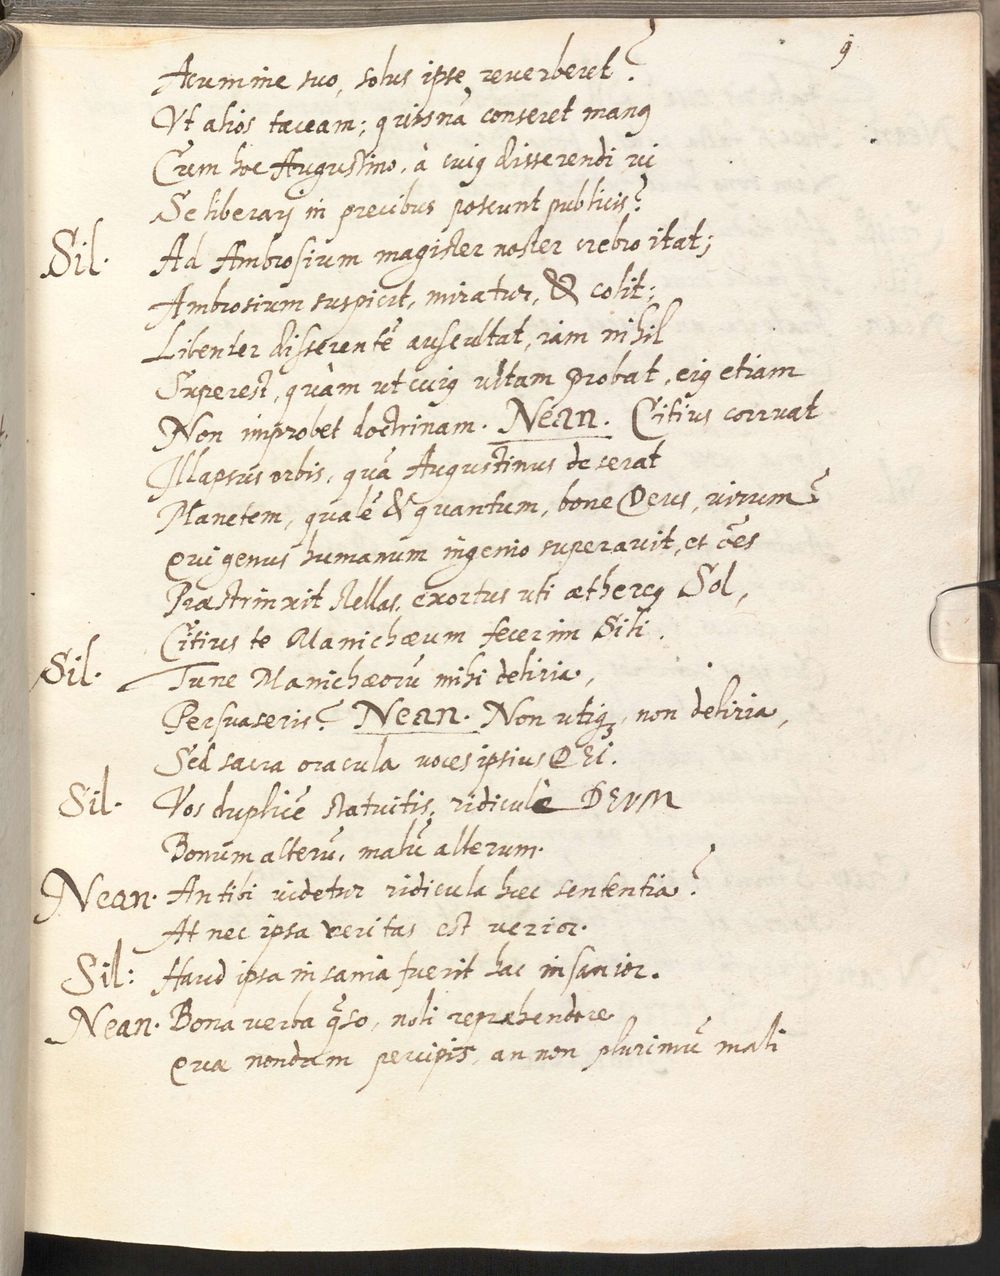 9
Acumine suo, solus ipse reuerberet?
Vt alios taceam; quisnã conseret manꝯ
Cum hoc Augustino, à cuiꝯ disserendi ui
Se liberarj in precibus poscunt publicis?
Sil. Ad Ambrosium magister noster crebro itat;
Ambrosium suspicit, miratur, & colit;
Libenter disserentẽ auscultat, iam nihil
Superest, quàm ut cuiꝯ uitam probat, eiꝯ etiam
Non improbet doctrinam. Nean. Citius corruat
Illapsus orbis, quã Augustinus deserat
Manetem, qualẽ & quantum, bone Deus, uirum?
Qui genus humanum ingenio superauit, et oẽs
Præstrinxit stellas, exortus uti æthereꝯ Sol,
Citius te Manichæum fecerim Sili.
Sil. Tune Manichæorũ mihi deliria,
Persuaseris? Nean. Non utiqꝫ, non deliria,
Sed sacra oracula uoces ipsius DEI.
Sil. Vos duplicẽ statuitis, ridiculè DEVM
Bonum alterũ, malũ alterum.
Nean. An tibi uidetur ridicula hæc sententia?
At nec ipsa ueritas est uerior.
Sil: Haud ipsa insania fuerit hac insanior.
Nean. Bona uerba q̃so, noli repræhendere
Quæ nondum percipis, an non plurimũ mali